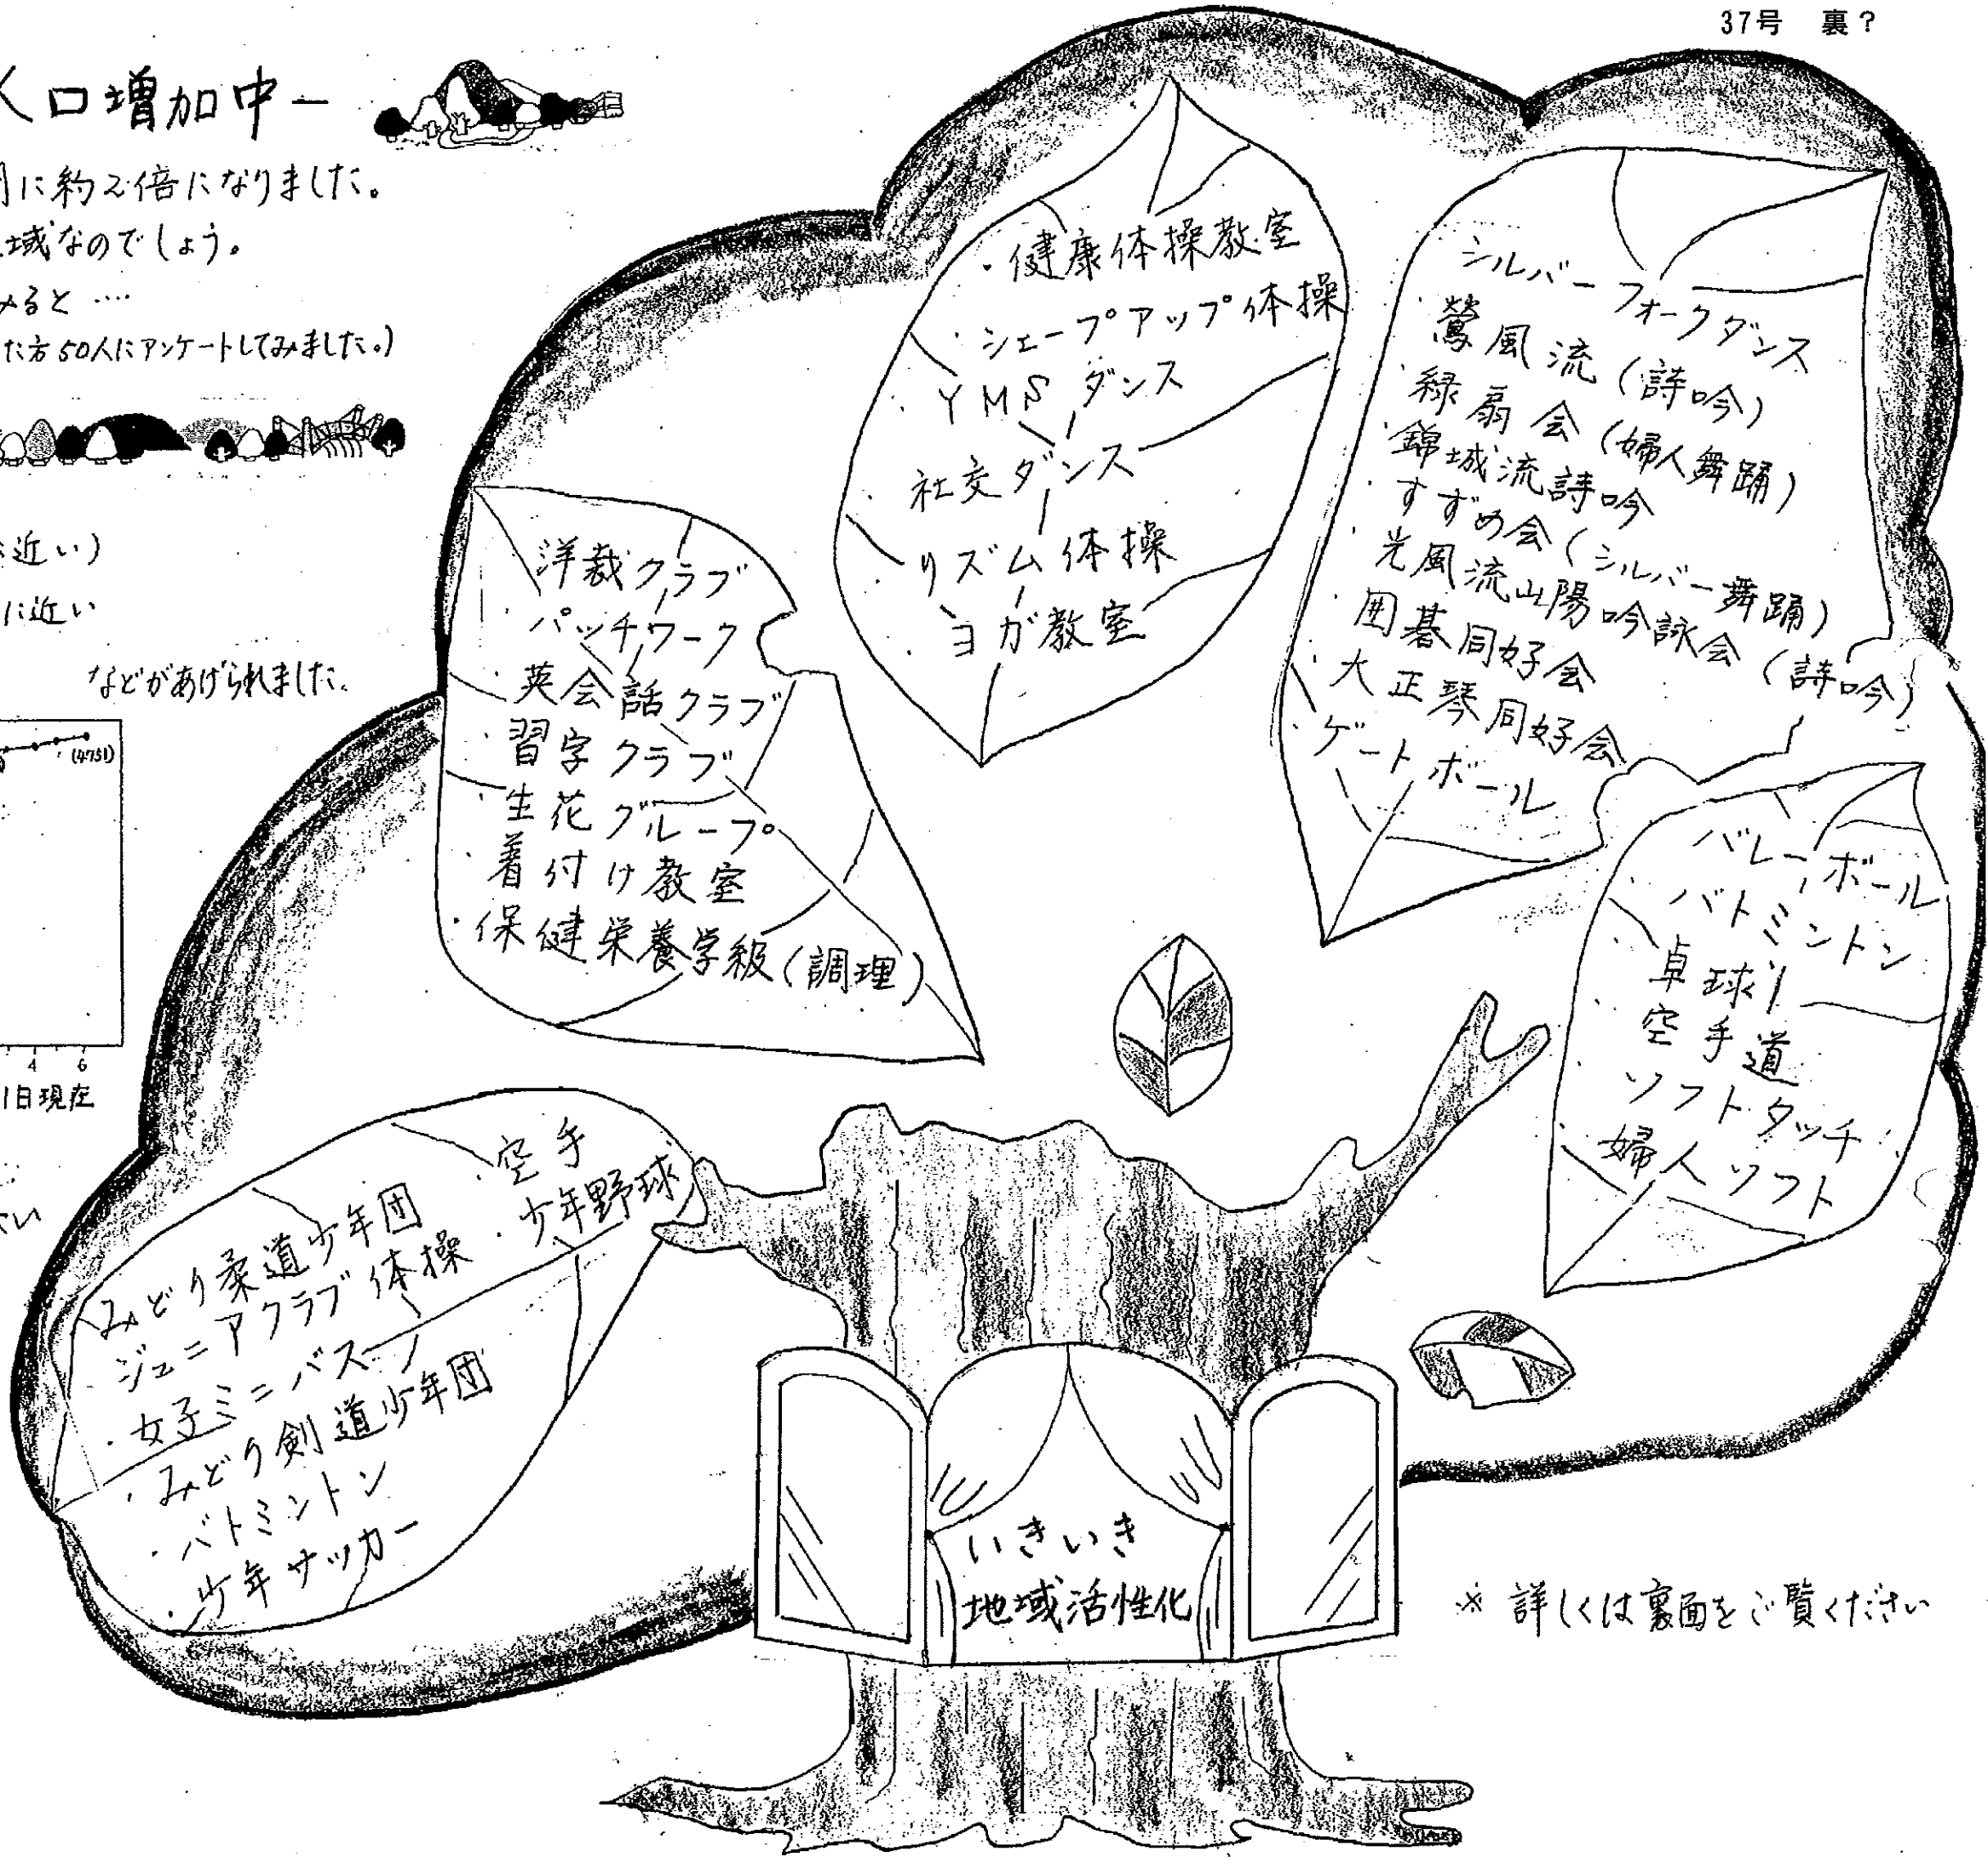 37号 裏？
人口増加中ー
間に約2倍になりました。
域なのでしょう。
みると‥‥
た方50人にアンケートしてみました。)
近い)
に近い
などがあげられました。
(4751)
4 6
1日現在
い
・健康体操教室
・シェープアップ体操
・YMSダンス
・社交ダンス
・リズム体操
・ヨガ教室
・シルバーフォークダンス
・鶯風流(詩吟)
・緑扇会(婦人舞踊)
・錦城流詩吟
・すずめ会(シルバー舞踊)
・光風流山陽吟詠会(詩吟)
・囲碁同好会
・大正琴同好会
・ゲートボール
・洋裁クラブ
・パッチワーク
・英会話クラブ
・習字クラブ
・生花グループ
・着付け教室
・保健栄養学級(調理)
・バレーボール
・バトミントン
・卓球
・空手道
・ソフトタッチ
・婦人ソフト
・みどり柔道少年団
・ジュニアクラブ体操
・女子ミニバス
・みどり剣道少年団
・バトミントン
・少年サッカー
・空手
・少年野球
いきいき
地域活性化
※ 詳しくは裏面をご覧ください